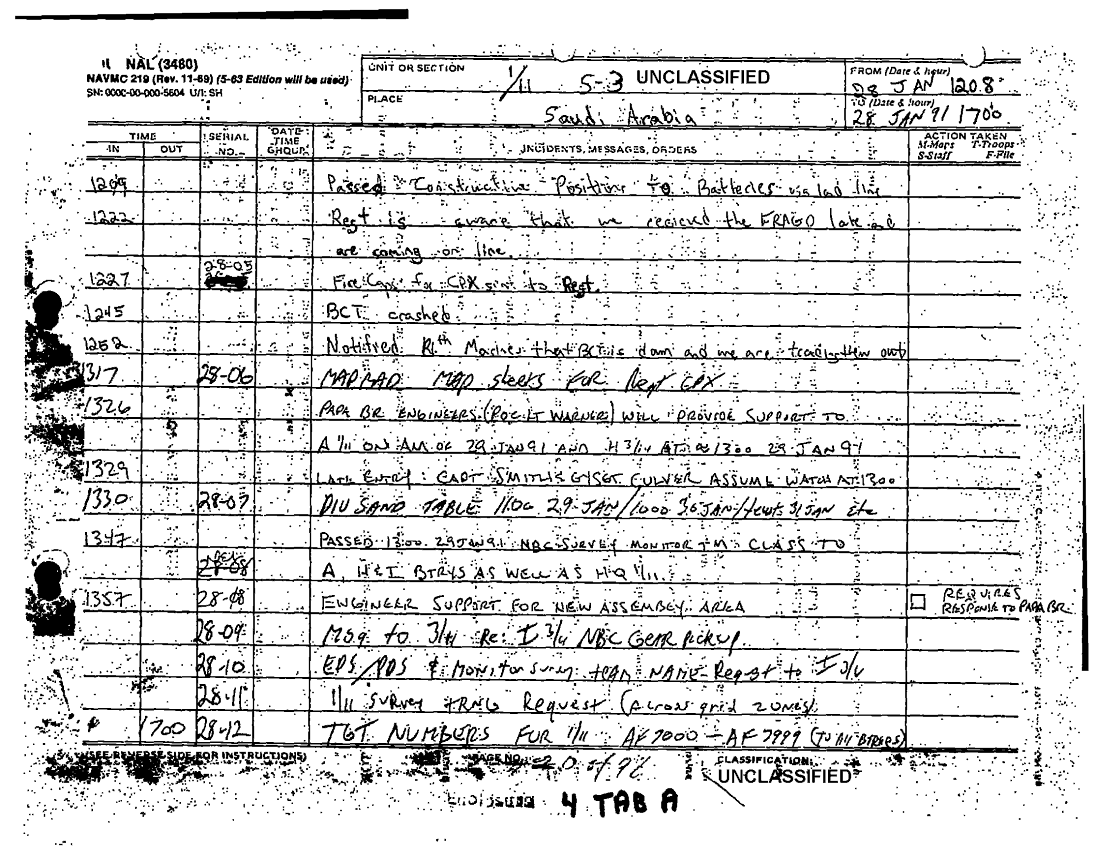 NAL (3480)
NAVMC 219 (Rev. 11-69) (5-63 Edition will be used)
SN: 0000-00-000-5604 U/I: SH
UNIT OR SECTION
1/11 S-3 UNCLASSIFIED
PLACE
Saudi Arabia
FROM (Date & hour)
28 JAN 1208
TO (Date & hour)
28 JAN 91 1700
TIME
IN OUT
SERIAL NO.
DATE TIME GROUP
INCIDENTS, MESSAGES, ORDERS
ACTION TAKEN
M-Maps T-Troops
S-Staff F-File
1209 Passed Constructive Positions to Batteries via land line
1222 Regt is aware that we recieved the FRAGO late and
are coming on line.
1227 28-05 Fire Caps for CPX sent to Regt.
1245 BCT crashed
1252 Notified 11th Marines that BCT is down and we are trading them out
1317 28-06 MAP sheets FOR Regt CPX
1326 PAPA BR ENGINEERS (POC: LT WARNER) WILL PROVIDE SUPPORT TO
A 1/11 ON AM OF 29 JAN 91 AND H 3/14 AT 1300 29 JAN 91
1329 LATE ENTRY: CAPT SMITH & GYSGT CULVER ASSUME WATCH AT 1300
1330 28-07 DIV SAND TABLE 1100 29 JAN/1000 30 JAN/ 31 JAN Etc
1347 PASSED 1300 29 JAN 91 NBC SURVEY MONITOR TM CLASS TO
A, H & I BTRYS AS WELL AS HQ 1/11.
1357 28-08 ENGINEER SUPPORT FOR NEW ASSEMBLY AREA REQUIRES
RESPONSE TO PAPA BR
28-09 MSG to 3/14 Re: I 3/14 NBC GEAR PICKUP
28-10 EPS/PDS & Monitor survey team NAME Request to I 3/14
28-11 1/11 SURVEY TRNG Request (Across grid zones)
* 1700 28-12 TGT NUMBERS FOR 1/11 AF7000 - AF7999 (TO All BTRYS)
(SEE REVERSE SIDE FOR INSTRUCTIONS)
PAGE NO. 20 of 96
CLASSIFICATION
UNCLASSIFIED
Enclosure 4 TAB A